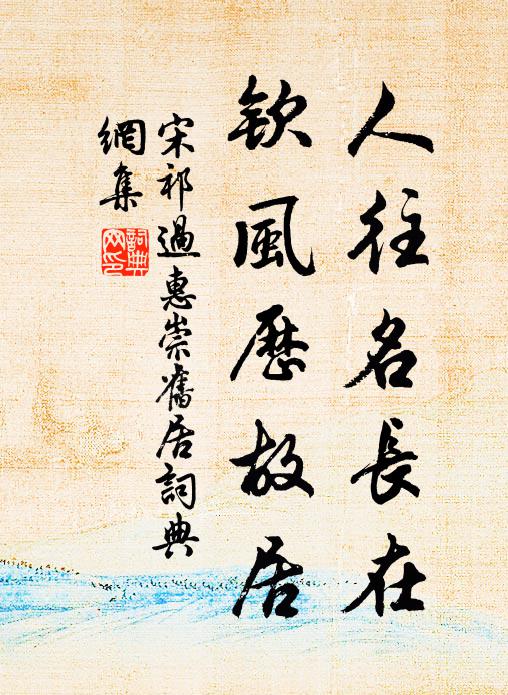 人往名長在
欽風歷故居
宋祁過惠崇舊居詞典
網集
詞典
网印